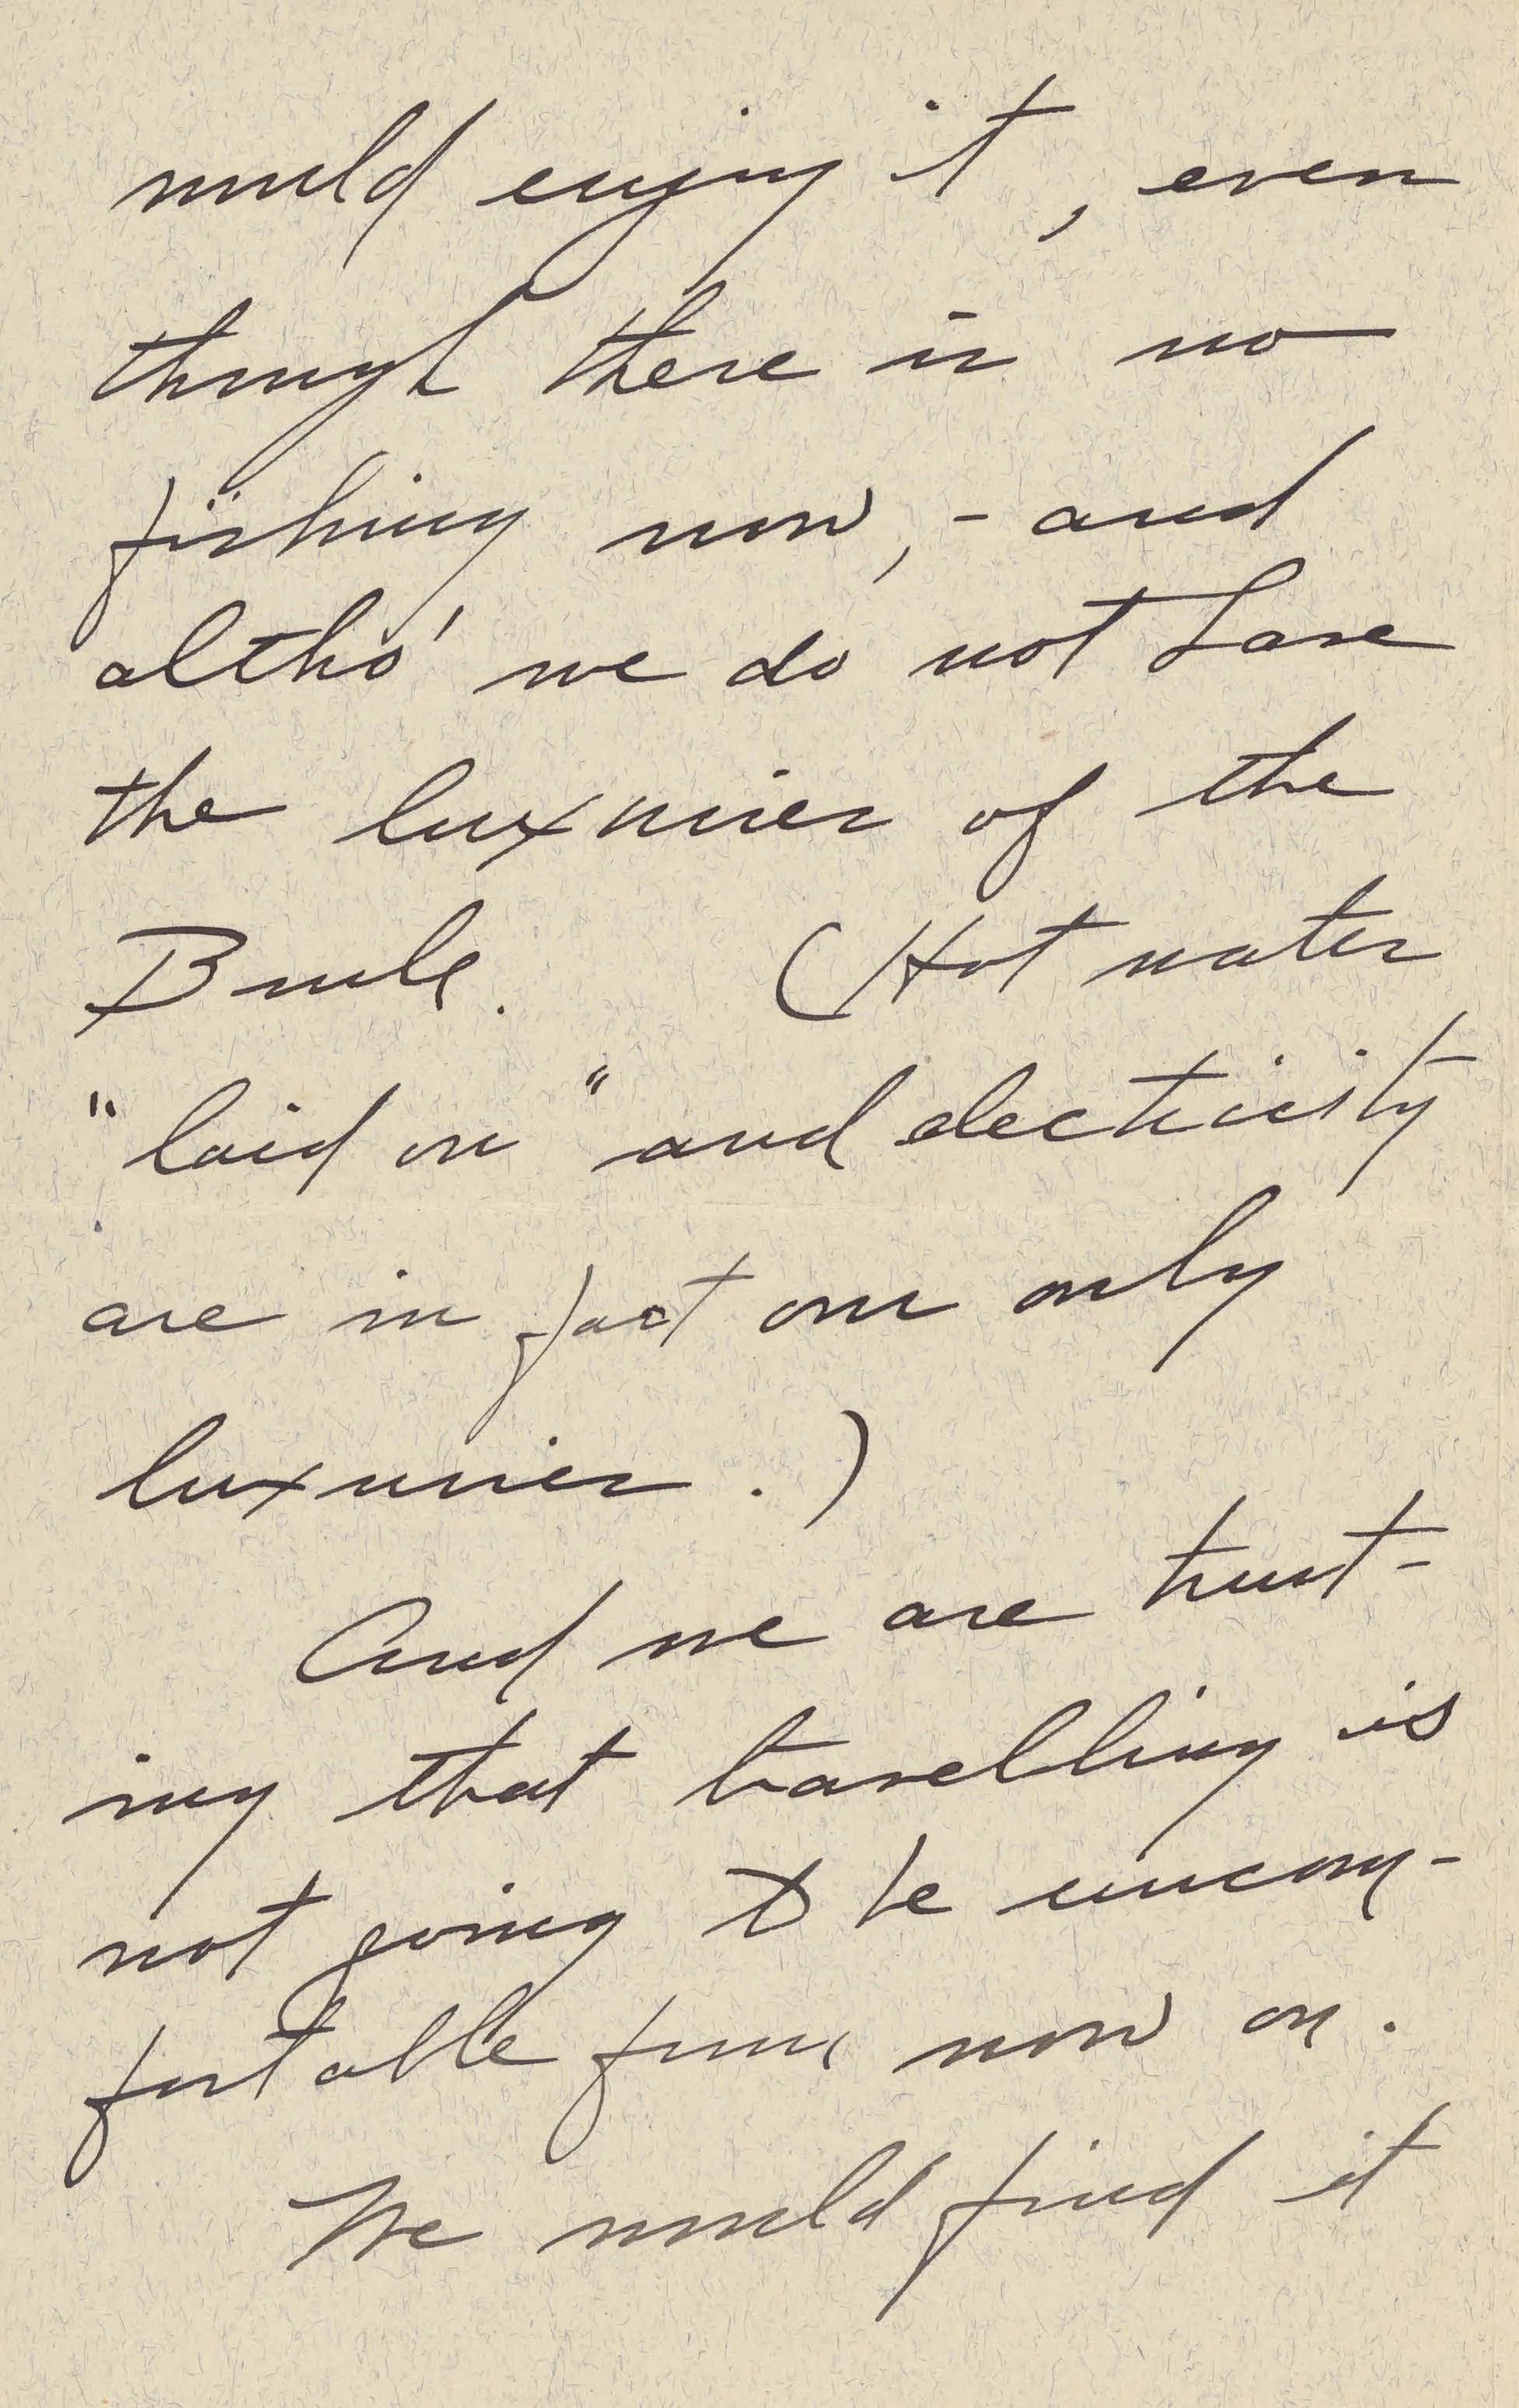 would enjoy it, even
though there is no
fishing now, - and
altho' we do not have
the luxuries of the
Brule. (Hot water
"laid on" and electricity
are in fact our only
luxuries.)
And we are trust-
ing that travelling is
not going to be uncom-
fortable from now on.
We would find it